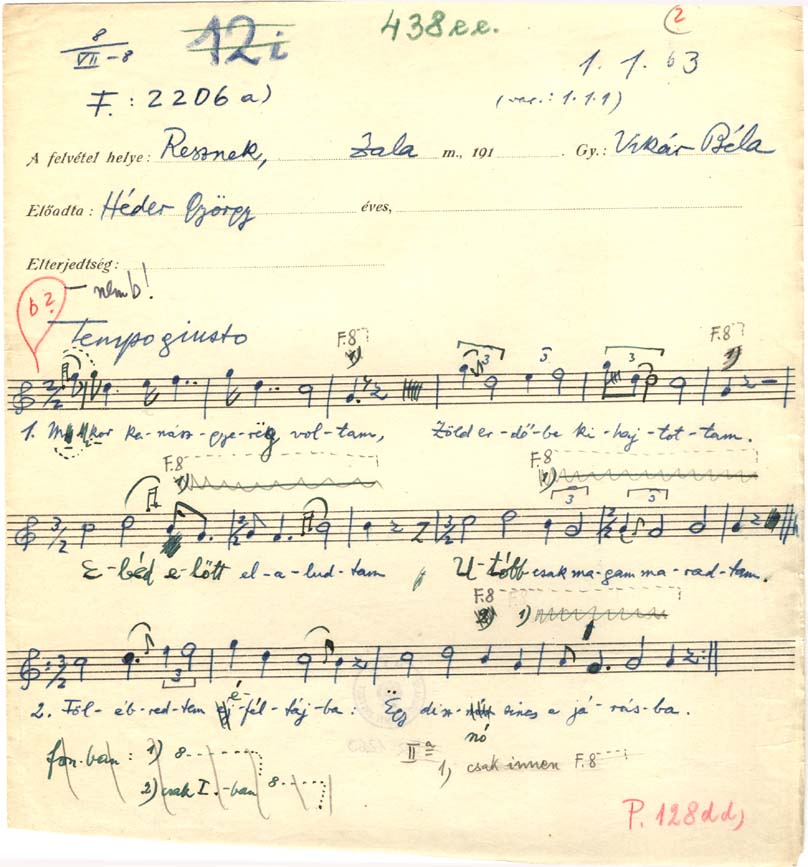 8
VII-8
12i
438ee.
2
F.: 2206 a)
1. 1. b3
(var.: 1.1.1)
A felvétel helye: Resznek, Zala m., 191 . Gy.: Vikár Béla
Előadta: Héder György éves,
Elterjedtség:
b2 nem b!
Tempo giusto
F.8 F.8
1. Mikor kanász-gye-rëg vol-tam, Zöld er-dő-be ki-haj-tot-tam.
F.8 F.8
E-béd e-lőtt el-a-lud-tam U-tóbb csak ma-gam ma-rad-tam.
F.8 1)
2. Föl-éb-red-tem é-fél-táj-ba. Ëgy disz-nó sincs a já-rás-ba.
fon.-ban: 1) 8
IIa 1) csak innen F.8
2) csak I.-ban 8
P. 128dd)